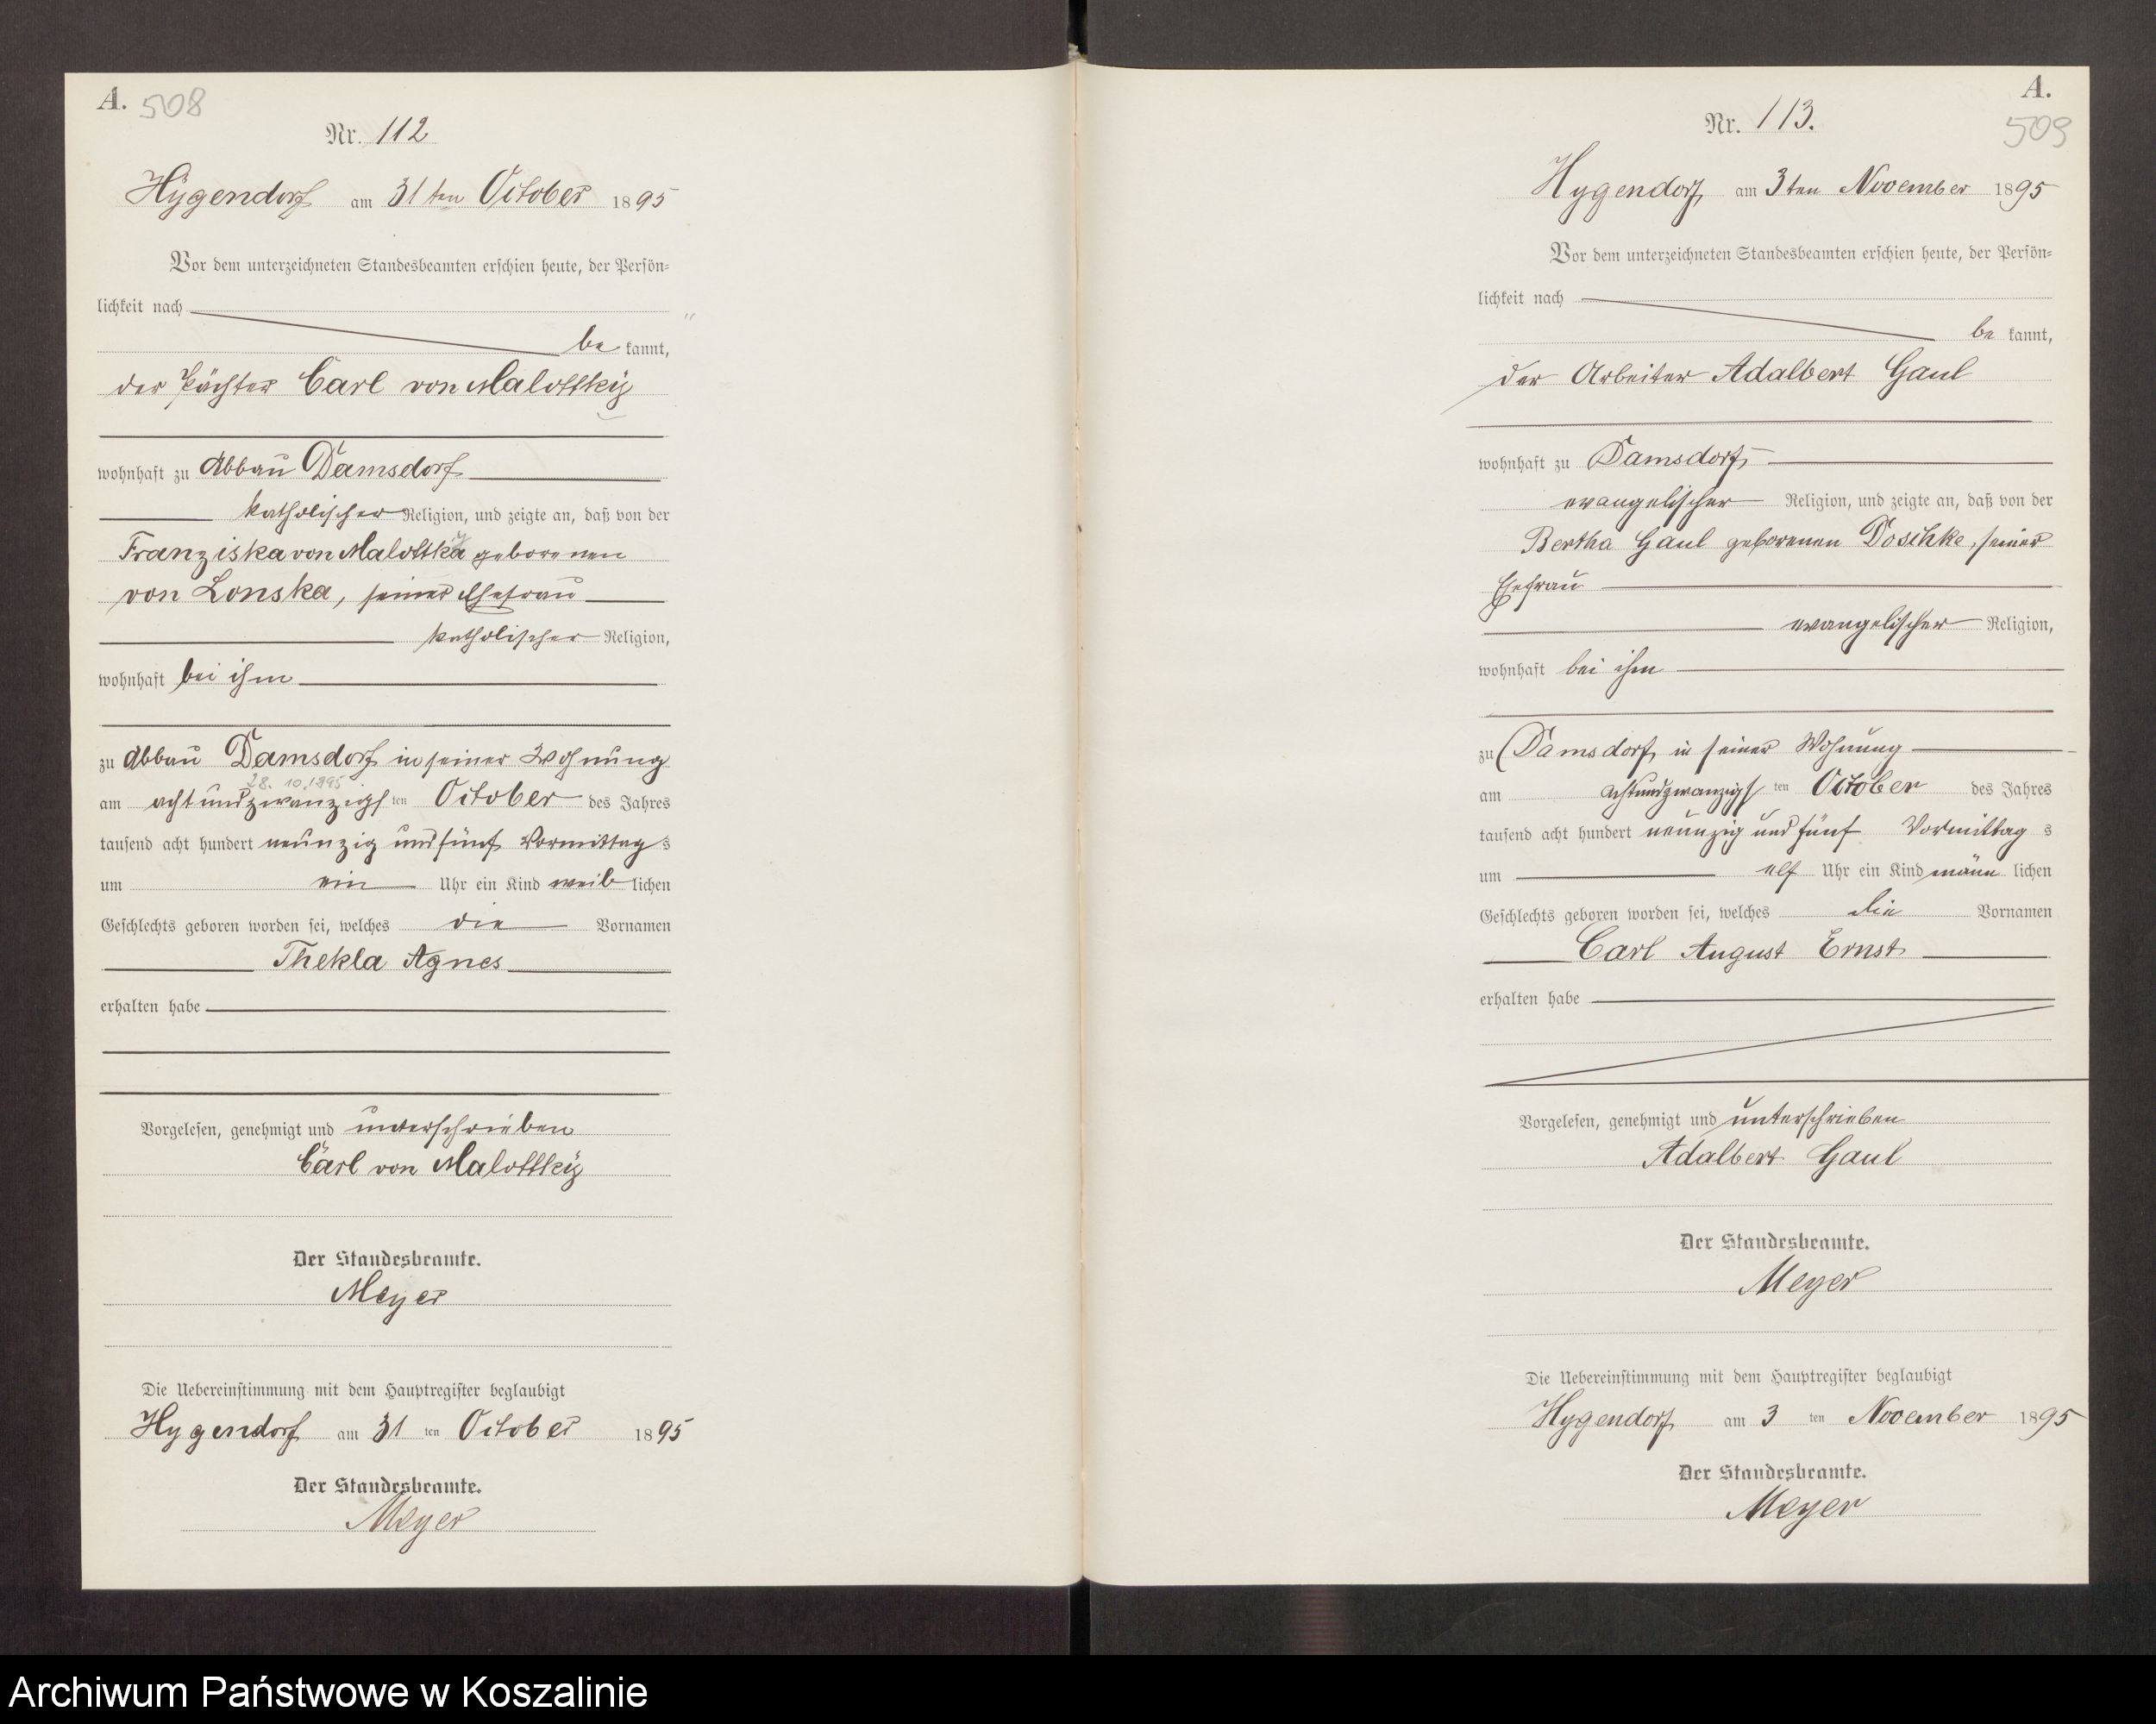 A. 508
Nr. 112
Hygendorf am 31ten October 1895
Vor dem unterzeichneten Standesbeamten erschien heute, der Persön-
lichkeit nach
be kannt,
der Pächter Carl von Malottky
wohnhaft zu Abbau Damsdorf
katholischer Religion, und zeigte an, daß von der
Franziska von Malottka geborenen
von Lonska, seiner Ehefrau
katholischer Religion,
wohnhaft bei ihm
zu Abbau Damsdorf in seiner Wohnung
28. 10. 1895
am achtundzwanzigs ten October des Jahres
tausend acht hundert neunzig und fünf Vormittag s
um ein Uhr ein Kind weib lichen
Geschlechts geboren worden sei, welches die Vornamen
Thekla Agnes
erhalten habe
Vorgelesen, genehmigt und unterschrieben
Carl von Malottky
Der Standesbeamte.
Meyer
Die Uebereinstimmung mit dem Hauptregister beglaubigt
Hygendorf am 31 ten October 1895
Der Standesbeamte.
Meyer
A.
509
Nr. 113.
Hygendorf am 3ten November 1895
Vor dem unterzeichneten Standesbeamten erschien heute, der Persön-
lichkeit nach
be kannt,
der Arbeiter Adalbert Gaul
wohnhaft zu Damsdorf
evangelischer Religion, und zeigte an, daß von der
Bertha Gaul geborenen Doschke, seiner
Ehefrau
evangelischer Religion,
wohnhaft bei ihm
zu Damsdorf in seiner Wohnung
am achtundzwanzigs ten October des Jahres
tausend acht hundert neunzig und fünf Vormittag s
um elf Uhr ein Kind männ lichen
Geschlechts geboren worden sei, welches die Vornamen
Carl August Ernst
erhalten habe
Vorgelesen, genehmigt und unterschrieben
Adalbert Gaul
Der Standesbeamte.
Meyer
Die Uebereinstimmung mit dem Hauptregister beglaubigt
Hygendorf am 3 ten November 1895
Der Standesbeamte.
Meyer
Archiwum Państwowe w Koszalinie